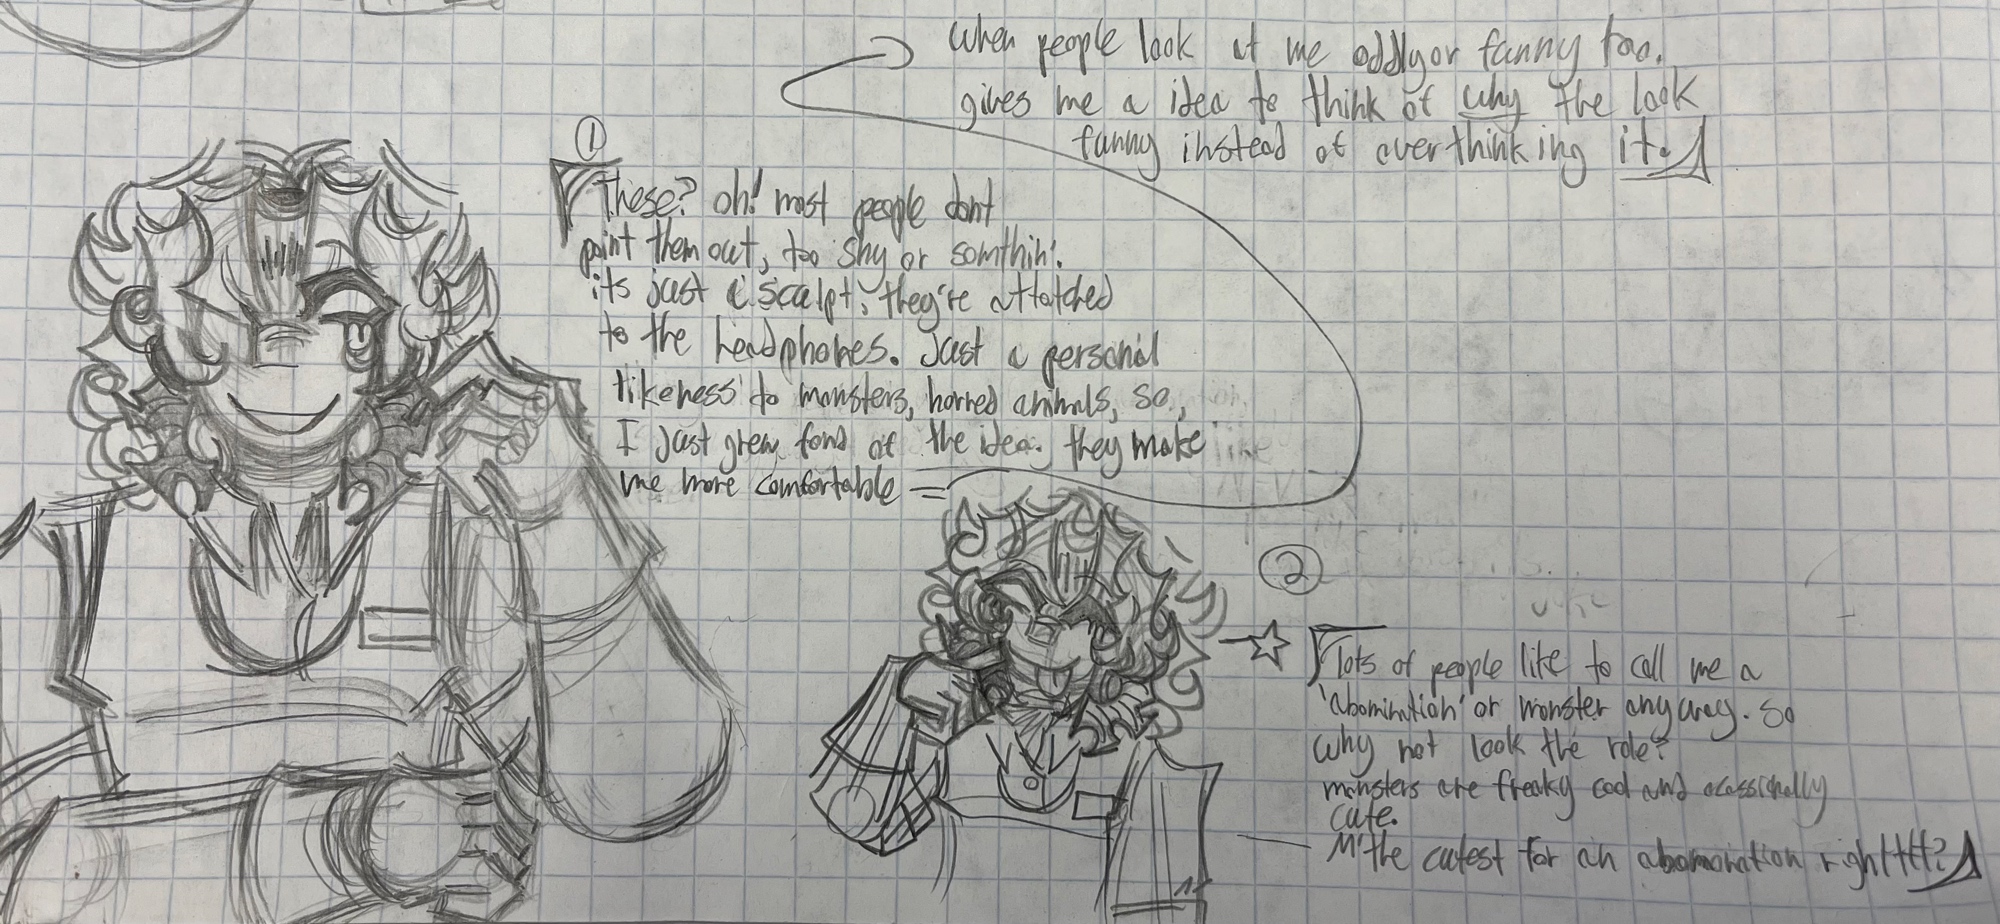 ①
These? oh! most people dont
point them out, too shy or somthin'.
its just a sculpt, they're attatched
to the headphones. Just a personal
likeness to monsters, horned animals, so,
I just grew fond of the idea. they make
me more comfortable
when people look at me oddly or funny too.
gives me a idea to think of why the look
funny instead of overthinking it.
②
lots of people like to call me a
'abomination' or monster anyway. so
why not look the role?
monsters are freaky cool and ocassionally
cute.
M'the cutest for an abomonation rightttt?